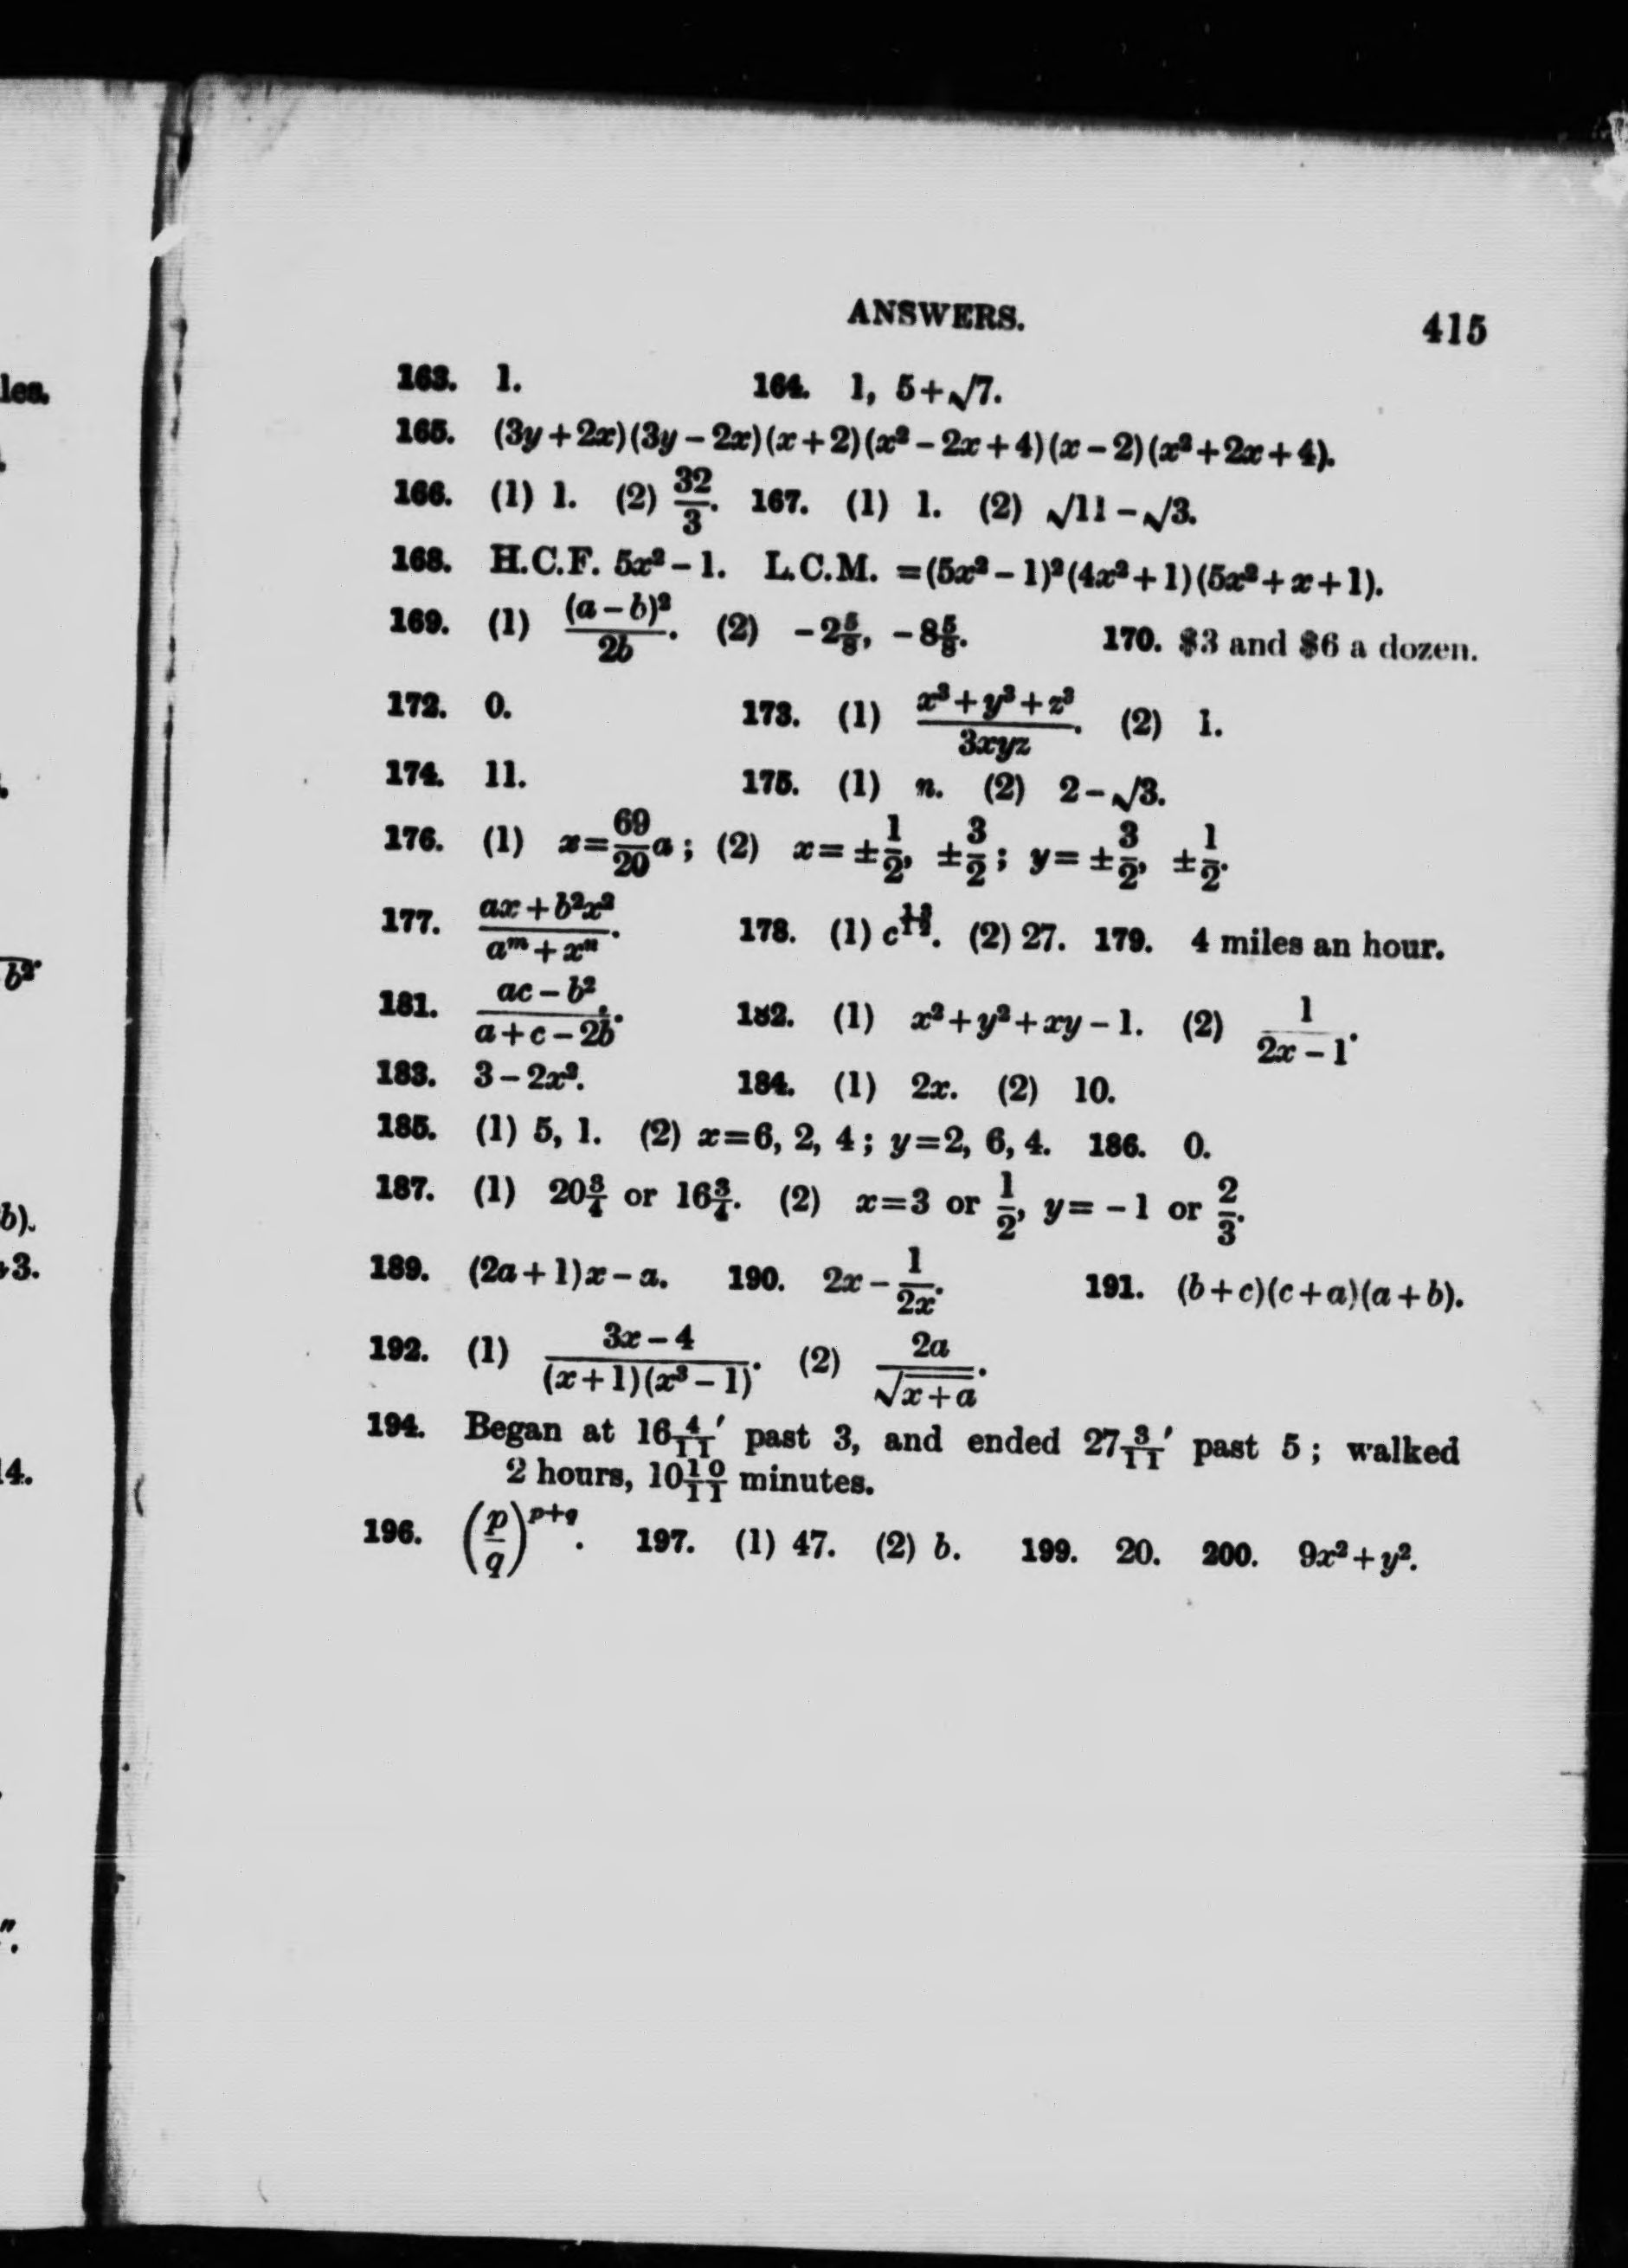 ANSWERS. 415
163. 1. 164. 1, 5+√7.
165. (3y+2x)(3y−2x)(x+2)(x²−2x+4)(x−2)(x²+2x+4).
166. (1) 1. (2) 32/3. 167. (1) 1. (2) √11−√3.
168. H.C.F. 5x²−1. L.C.M. =(5x²−1)²(4x²+1)(5x²+x+1).
169. (1) (a−b)²/2b. (2) −2⅝, −8⅝. 170. $3 and $6 a dozen.
172. 0. 173. (1) (x³+y³+z³)/3xyz. (2) 1.
174. 11. 175. (1) n. (2) 2−√3.
176. (1) x=69/20 a; (2) x=±1/2, ±3/2; y=±3/2, ±1/2.
177. (ax+b²x²)/(aᵐ+xⁿ). 178. (1) c^. (2) 27. 179. 4 miles an hour.
181. (ac−b²)/(a+c−2b). 182. (1) x²+y²+xy−1. (2) 1/(2x−1).
183. 3−2x². 184. (1) 2x. (2) 10.
185. (1) 5, 1. (2) x=6, 2, 4; y=2, 6, 4. 186. 0.
187. (1) 20¾ or 16¾. (2) x=3 or 1/2, y=−1 or 2/3.
189. (2a+1)x−a. 190. 2x−1/2x. 191. (b+c)(c+a)(a+b).
192. (1) (3x−4)/((x+1)(x³−1)). (2) 2a/√(x+a).
194. Began at 16 4/11′ past 3, and ended 27 3/11′ past 5; walked
2 hours, 10 10/11 minutes.
196. (p/q)^(p+q). 197. (1) 47. (2) b. 199. 20. 200. 9x²+y².